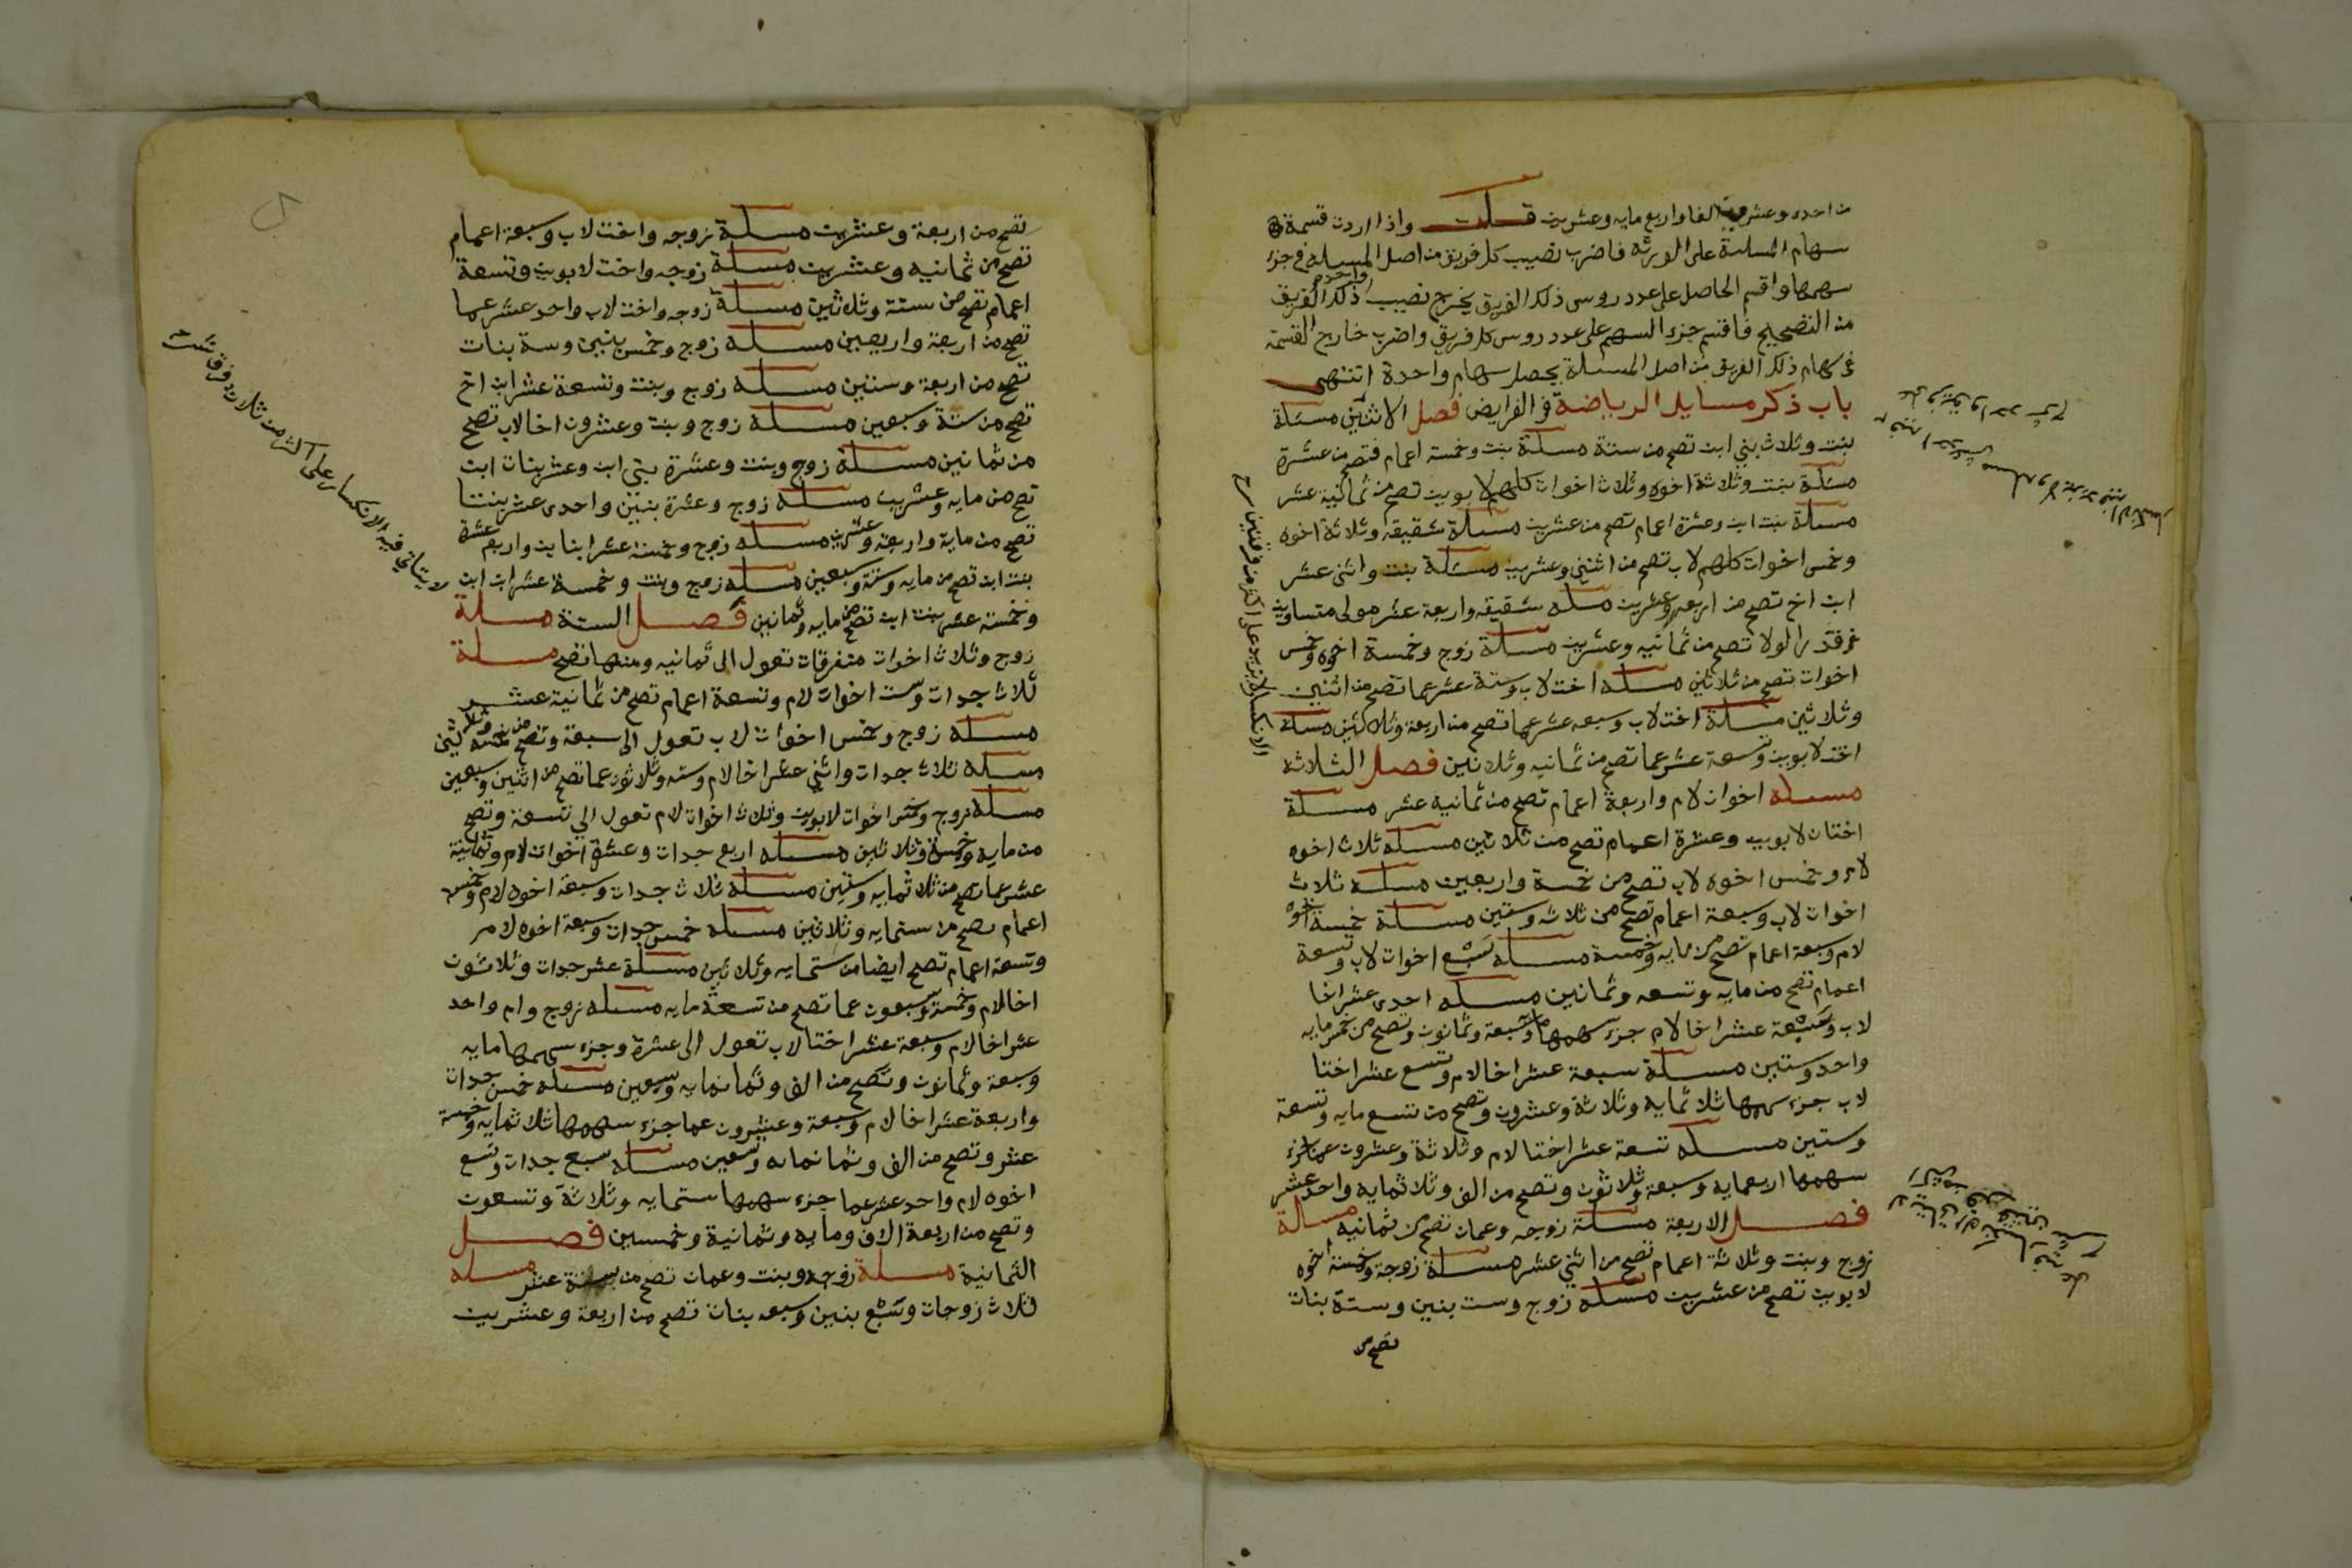 من احدى وعشرين الفا واربع مايه وعشرين قلت واذا اردت قسمة
سهام المسئلة على الورثه فاضرب نصيب كل فريق من اصل المسيله في جزء
سهمها واقسم الحاصل على عدد روس ذلك الفريق يخرج نصيب واحد ذلك الفريق
من التصحيح فاقسم جزء السهم على عدد روس كل فريق واضرب خارج القسمة
في سهام ذلك الفريق من اصل المسيلة يحصل سهام واحدة انتهى
باب ذكر مسايل الرياضة في الفرايض فصل الاثنين مسئلة
بنت وثلاث بني ابن تصح من ستة مسئلة بنت وخمسة اعمام فتصح من عشرة
مسئلة بنت وثلاثة اخوه وثلاث اخوات كلهم لابوين تصح من ثمانية عشر
مسئلة بنت ابن وعشرة اعمام تصح من عشرين مسئلة شقيقه وثلاثة اخوه
وخمس اخوات كلهم لاب تصح من اثنين وعشرين مسئلة بنت واثنى عشر
ابن اخ تصح من اربعه وعشرين مسئله شقيقه واربعة عشر مولى متساوين
في قدر الولا تصح من ثمانيه وعشرين مسئلة زوج وخمسة اخوه وخمس
اخوات تصح من ثلاثين مسئله اخت لاب وستة عشر عما تصح من اثنين
وثلاثين مسئلة اخت لاب وسبعه عشر عما تصح من اربعة وثلاثين مسئلة
اخت لابوين وتسعة عشر عما تصح من ثمانيه وثلاثين فصل الثلاثه
مسئله اخوان لام واربعة اعمام تصح من ثمانية عشر مسئلة
اختان لابوين وعشرة اعمام تصح من ثلاثين مسئله ثلاث اخوه
لام وخمس اخوه لاب تصح من خمسة واربعين مسئله ثلاث
اخوات لاب وسبعة اعمام تصح من ثلاثه وستين مسئلة خمسة اخوه
لام وسبعة اعمام تصح من مايه وخمسة مسئله سبع اخوات لاب وتسعة
اعمام تصح من مايه وتسعه وثمانين مسئله احدى عشر اخا
لاب وسبعة عشر اخا لام جزء سهمها مايه وسبعة وثمانون وتصح من خمس مايه
واحد وستين مسئلة سبعة عشر اخا لام وتسع عشر اختا
لاب جزء سهمها ثلاثمايه وثلاثة وعشرون وتصح من تسع مايه وتسعة
وستين مسئله تسعة عشر اختا لام وثلاثة وعشرون عما جزء
سهمها اربعمايه وسبعة وثلاثون وتصح من الف وثلاثمايه واحد عشر
فصل الاربعة مسئلة زوجه وعمان تصح من ثمانيه مسئلة
زوج وبنت وثلاثة اعمام تصح من اثني عشر مسئلة زوجة وخمسة اخوه
لابوين تصح من عشرين مسئله زوج وست بنين وستة بنات
تصح من
الانكسار لا يزيد على اكثر من فرقتين
تصح من اربعة وعشرين مسئلة زوجه واخت لاب وسبعة اعمام
تصح من ثمانيه وعشرين مسئلة زوجه واخت لابوين وتسعة
اعمام تصح من ستة وثلاثين مسئلة زوجه واخت لاب واحد عشر عما
تصح من اربعة واربعين مسئله زوج وخمس بنين وستة بنات
تصح من اربعة وستين مسئله زوج وبنت وتسعة عشر ابن اخ
تصح من ستة وسبعين مسئله زوج وبنت وعشرون اخا لاب تصح
من ثمانين مسئلة زوج وبنت وعشرة بني ابن وعشر بنات ابن
تصح من مايه وعشرين مسئله زوج وعشرة بنين واحدى عشر بنتا
تصح من ماية واربعة وعشرين مسئله زوج وخمسة عشر ابنا بن واربع عشرة
بنت ابن تصح من مايه وستة وسبعين مسئله زوج وبنت وخمسة عشر ابن ابن
وخمسة عشر بنت ابن تصح من مايه وثمانين فصل الستة مسئلة
زوج وثلاث اخوات متفرقات تعول الى ثمانيه ومنها تصح مسئلة
ثلاث جدات وست اخوات لام وتسعة اعمام تصح من ثمانية عشر
مسئله زوج وخمس اخوات لاب تعول الى سبعة وتصح من خمسة وثلاثين
مسئله ثلاث جدات واثني عشر اخا لام وسته وثلاثون عما تصح من اثنين وسبعين
مسئلة زوج وخمس اخوات لابوين وثلاث اخوات لام تعول الى تسعة وتصح
من مايه وخمسة وثلاثين مسئله اربع جدات وعشرة اخوات لام وثمانية
عشر عما تصح من ثلاثمايه وستين مسئله ثلاث جدات وسبعة اخوه لام وخمسه
اعمام تصح من ستمايه وثلاثين مسئله خمس جدات وسبعة اخوه لام
وتسعة اعمام تصح ايضا من ستمايه وثلاثين مسئلة عشر جدات وثلاثون
اخا لام وخمسة وسبعون عما تصح من تسعة مايه مسئله زوج وام واحد
عشر اخا لام وسبعة عشر اختا لاب تعول الى عشرة وجزء سهمها مايه
وسبعة وثمانون وتصح من الف وثمانمايه وسبعين مسئله خمس جدات
واربعة عشر اخا لام وسبعة وعشرون عما جزء سهمها ثلاثمايه وخمسة
عشر وتصح من الف وثمانمايه وتسعين مسئله سبع جدات وتسع
اخوه لام واحد عشر عما جزء سهمها ستمايه وثلاثة وتسعون
وتصح من اربعة الاف ومايه وثمانية وخمسين فصل
الثمانية مسئلة زوجه وبنت وعمان تصح من ستة عشر مسئله
ثلاث زوجات وسبع بنين وسبعه بنات تصح من اربعة وعشرين
لا يتاتى فيه الانكسار على اكثر من ثلاث فرق